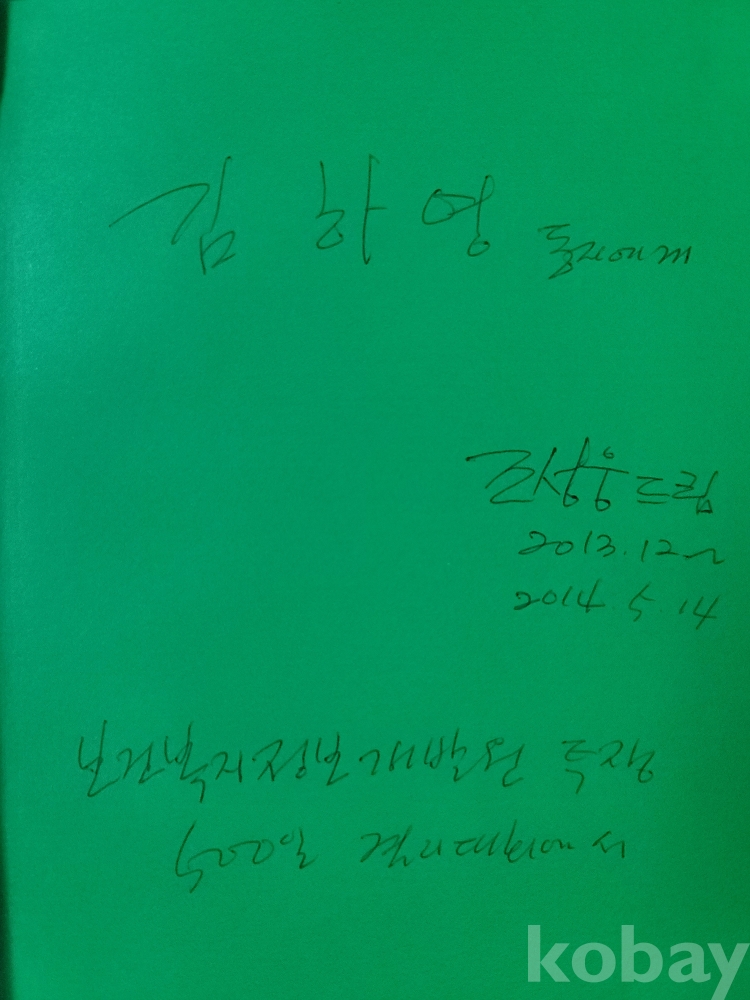 김 하 영 동지에게
조성웅 드림
2013. 12 ~
2014. 5. 14
보건복지정보개발원 투쟁
500일 결의대회에서
kobay